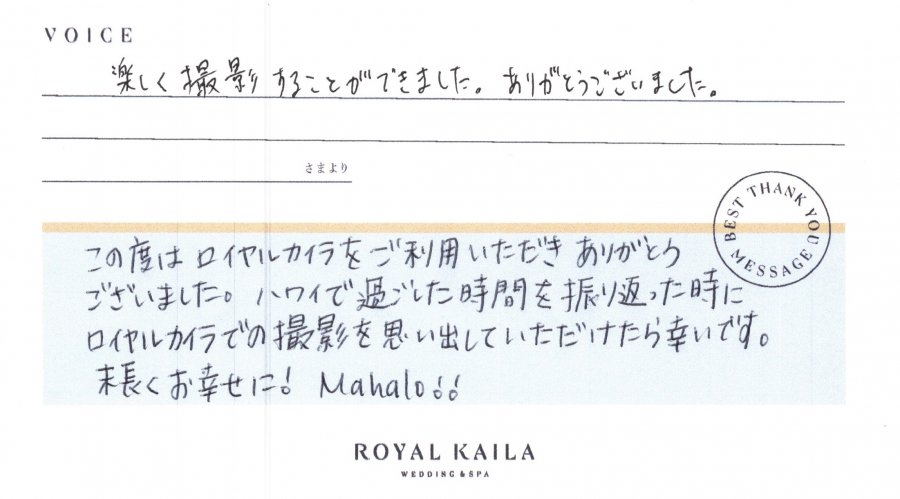 VOICE
楽しく撮影することができました。ありがとうございました。
さまより
BEST THANK YOU MESSAGE
この度はロイヤルカイラをご利用いただきありがとう
ございました。ハワイで過ごした時間を振り返った時に
ロイヤルカイラでの撮影を思い出していただけたら幸いです。
末長くお幸せに! Mahalo!!
ROYAL KAILA
WEDDING & SPA